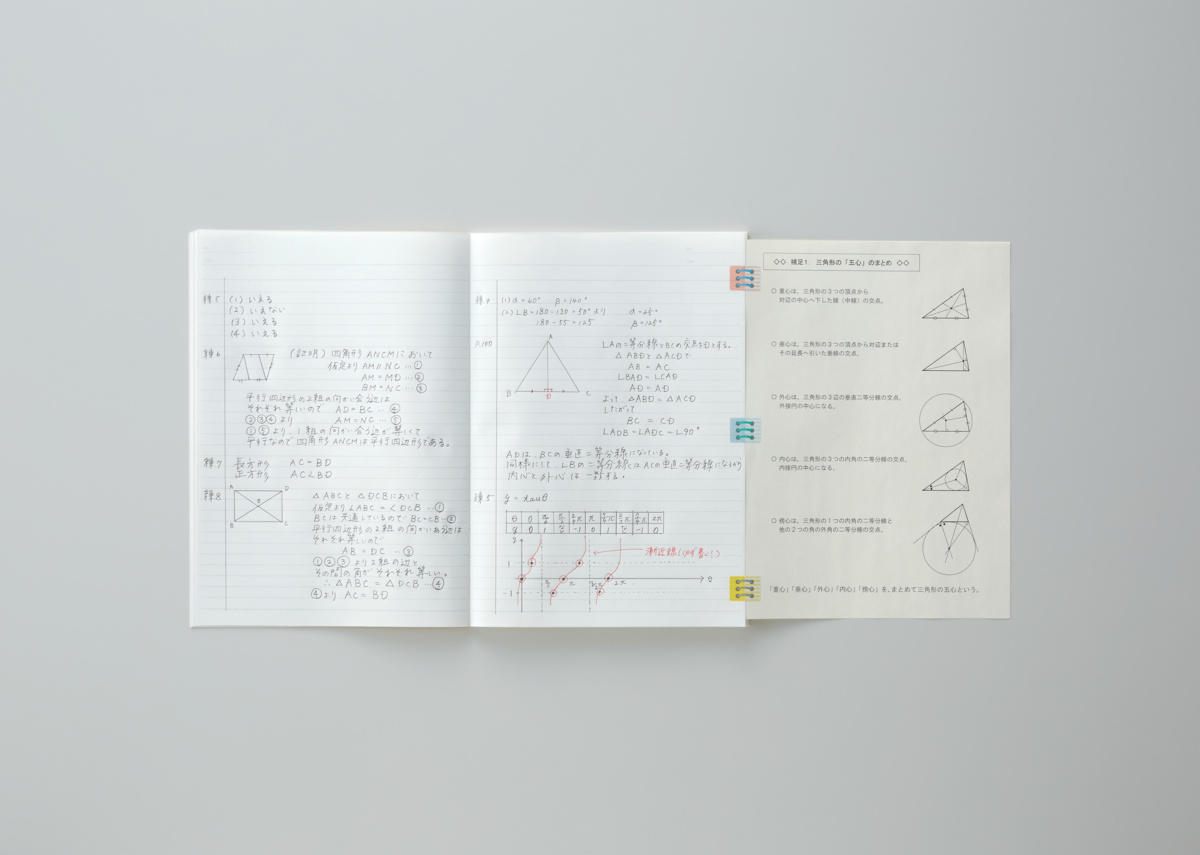 練5
(1) いえる
(2) いえない
(3) いえる
(4) いえる
練6
(証明) 四角形 ANCMにおいて
仮定より AM∥NC …①
AM = MD …②
BM = NC …③
平行四辺形の2組の向かい合う辺は
それぞれ等しいので AD = BC …④
②③④より AM=NC …⑤
①⑤より、1組の向かい合う辺が等しくて
平行なので四角形ANCMは平行四辺形である。
練7
長方形 AC = BD
正方形 AC⊥BD
練8
A D
B C
△ABCと △DCBにおいて
仮定より∠ABC = ∠DCB …①
BCは共通しているので BC=CB …②
平行四辺形の2組の向かい合う辺は
それぞれ等しいので
AB = DC …③
①②③より2組の辺と
その間の角がそれぞれ等しい。
∴ △ABC = △DCB …④
④より AC = BD
(1) α = 40° β = 140°
(2) LB = 180-130 = 50°より α=25°
180 - 55 = 125 β=125°
P.100
A
B D C
LAの二等分線とBCの交点をDとする。
△ABDと△ACDで
AB = AC
LBAD = LCAD
AD = AD
よって △ABD = △ACD
したがって
BC = CD
LADB = LADC = L90°
ADは、BCの垂直二等分線になっている。
同様にして、LBの二等分線はACの垂直二等分線になるから
内心と外心は一致する。
練5
y = tanθ
漸近線(必ず書く!)
1
-1
π
2π
θ
◇◇ 補足1. 三角形の「五心」のまとめ ◇◇
○ 重心は、三角形の3つの頂点から
対辺の中心へ下した線(中線)の交点。
○ 垂心は、三角形の3つの頂点から対辺または
その延長へ引いた垂線の交点。
○ 外心は、三角形の3辺の垂直二等分線の交点。
外接円の中心になる。
○ 内心は、三角形の3つの内角の二等分線の交点。
内接円の中心になる。
○ 傍心は、三角形の1つの内角の二等分線と
他の2つの角の外角の二等分線の交点。
「重心」「垂心」「外心」「内心」「傍心」を、まとめて三角形の五心という。